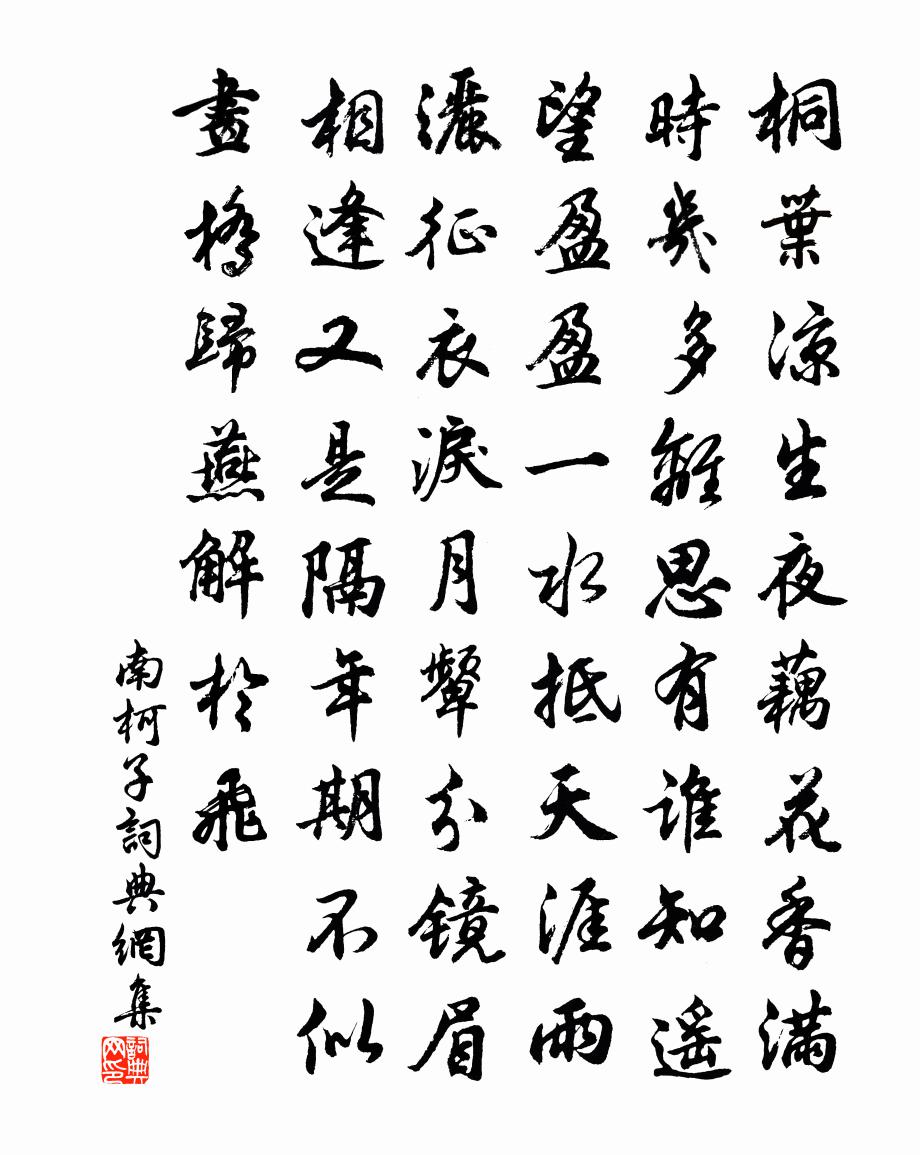 桐葉涼生夜藕花香滿
時幾多離思有誰知遙
望盈盈一水抵天涯雨
灑征衣淚月顰分鏡眉
相逢又是隔年期不似
畫橋歸燕解於飛
南柯子詞典網集
詞典网印